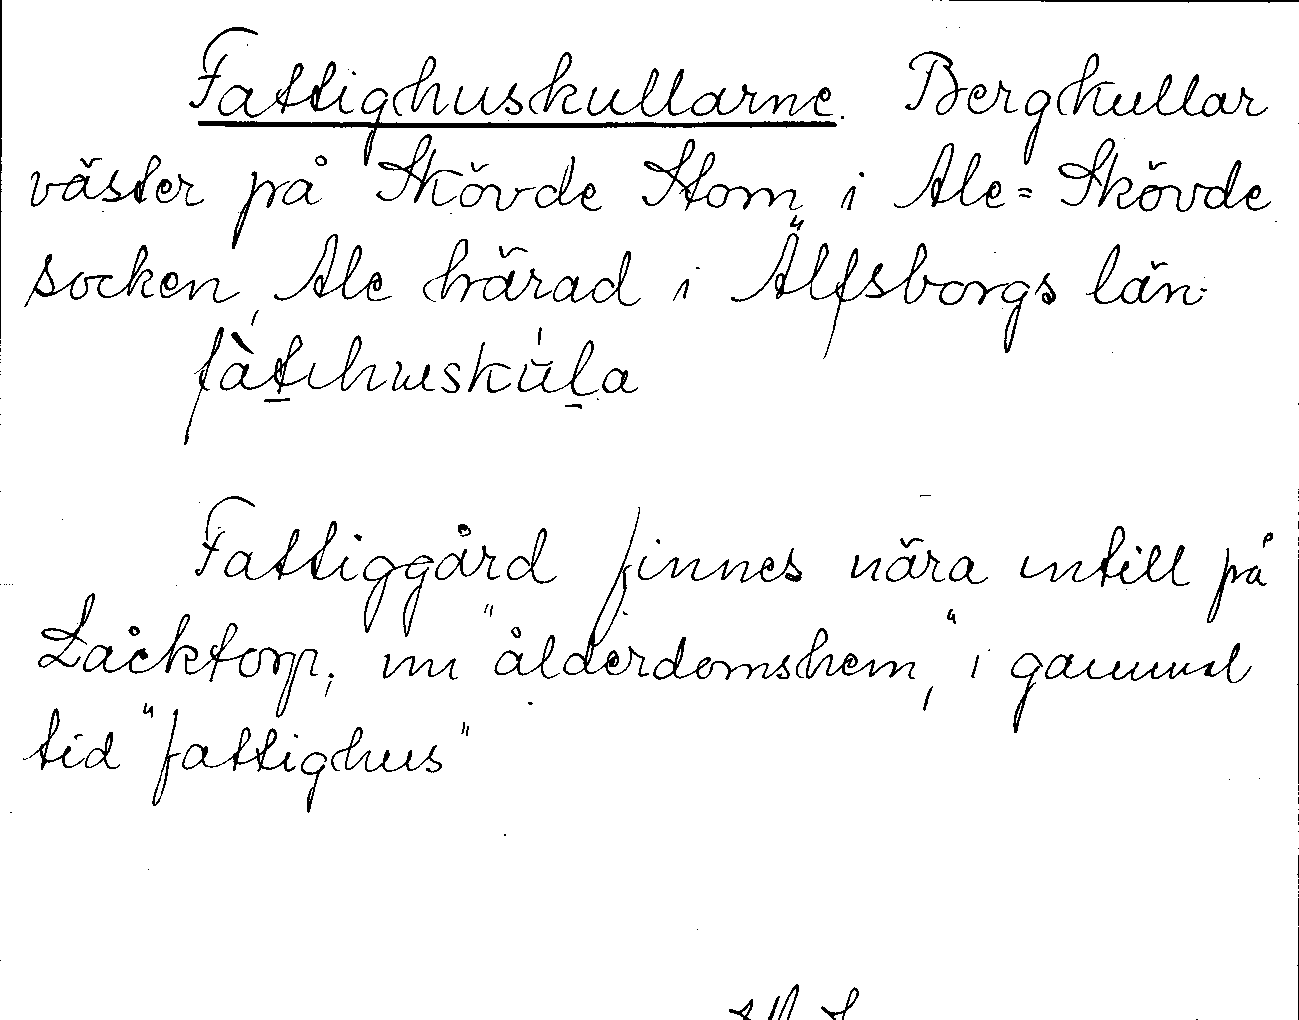 Fattighuskullarne. Bergkullar
väster på Skövde Stom i Ale-Skövde
socken, Ale härad i Älfsborgs län.
fàtihuskúla
Fattiggård finnes nära intill på
Låcktorp; nu "ålderdomshem", i gammal
tid "fattighus"